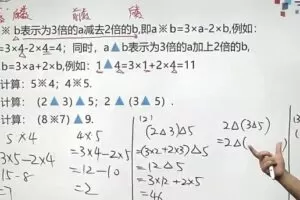 ※ b表示为3倍的a减去2倍的b,即a※b=3×a-2×b,例如:
=3×4-2×4=4；同时，a▲b表示为3倍的a加上2倍的b,
b=3×a+2×b,例如：1▲4=3×1+2×4=11
计算：5※4；4※5.
计算：（2▲3）▲5；2▲（3▲5）.
计算：（8※7）▲9.
5 × 4
3×5-2×4
15-8
=7
4×5
=3×4-2×5
=12-10
=2
(2)
(2△3)△5
=(3×2+2×3)△5
=12△5
=3×12+2×5
=46
2△(3△5)
=2△(